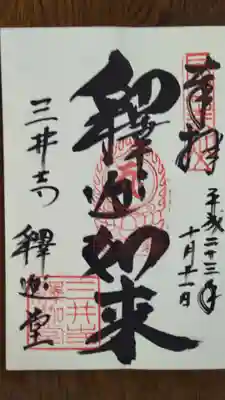 奉拝
平成二十三年
十月十一日
釋迦如来
三井寺
釋迦堂
三井寺